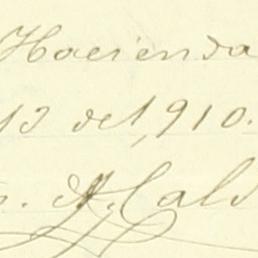 Hacienda
13 del 1,910.
. A. Cald